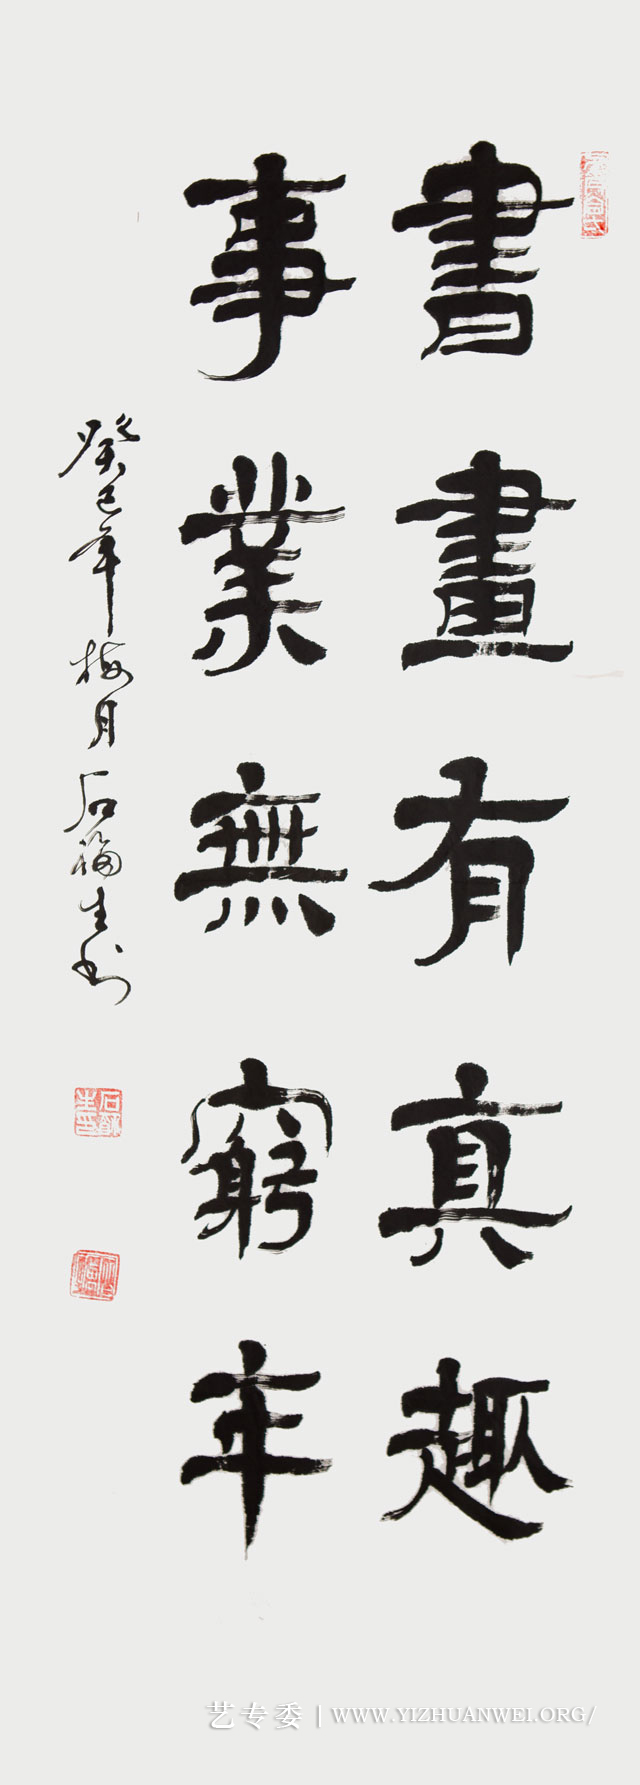 書畫有真趣
事業無窮年
癸巳年梅月石福生书
艺专委 | WWW.YIZHUANWEI.ORG/